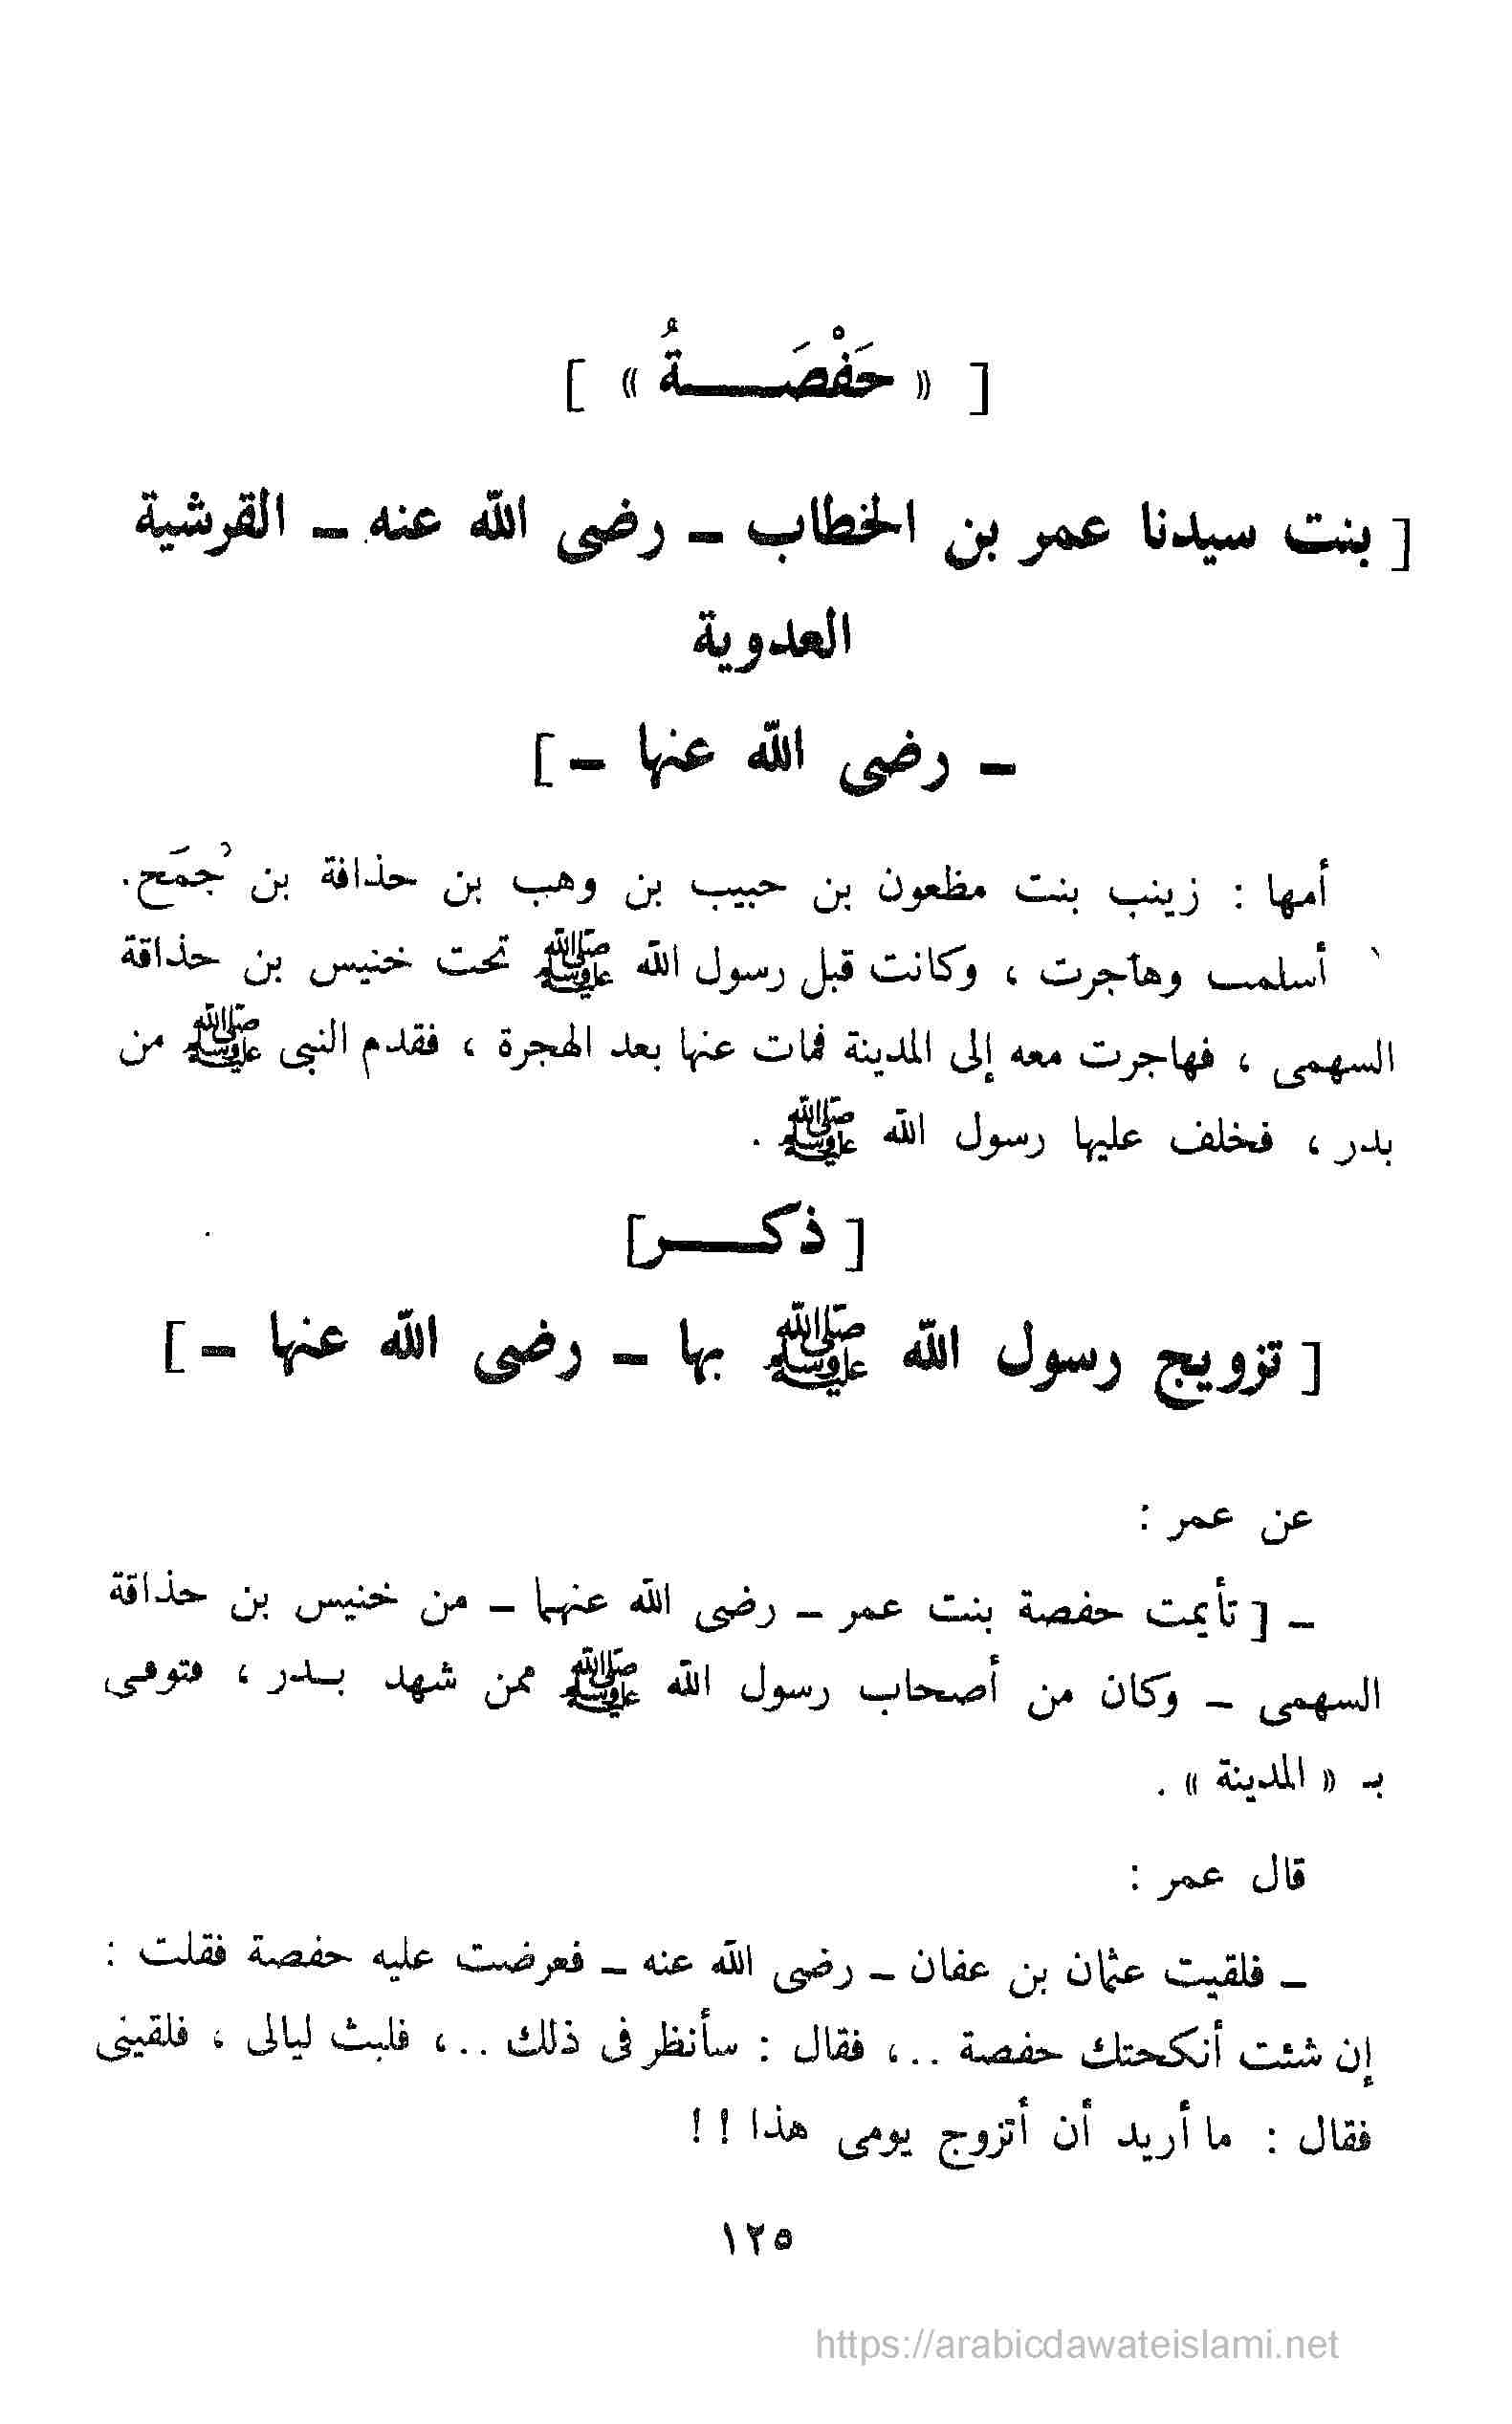 [ « حَفْصَـــــةُ » ]
[ بنت سيدنا عمر بن الخطاب – رضى الله عنه – القرشية
العدوية
– رضى الله عنها – ]
أمها : زينب بنت مظعون بن حبيب بن وهب بن حذافة بن جُمَح.
أسلمت وهاجرت ، وكانت قبل رسول الله ﷺ تحت خنيس بن حذاقة
السهمى ، فهاجرت معه إلى المدينة فمات عنها بعد الهجرة ، فقدم النبى ﷺ من
بدر ، فخلف عليها رسول الله ﷺ .
[ ذكـــــر ]
[ تزويج رسول الله ﷺ بها – رضى الله عنها – ]
عن عمر :
– [ تأيمت حفصة بنت عمر – رضى الله عنهما – من خنيس بن حذاقة
السهمى – وكان من أصحاب رسول الله ﷺ ممن شهد بـدر ، فتوفى
بـ « المدينة » .
قال عمر :
– فلقيت عثمان بن عفان – رضى الله عنه – فعرضت عليه حفصة فقلت :
إن شئت أنكحتك حفصة ..، فقال : سأنظر فى ذلك ..، فلبث ليالى ، فلقينى
فقال : ما أريد أن أتزوج يومى هذا !!
١٢٥
https://arabicdawateislami.net